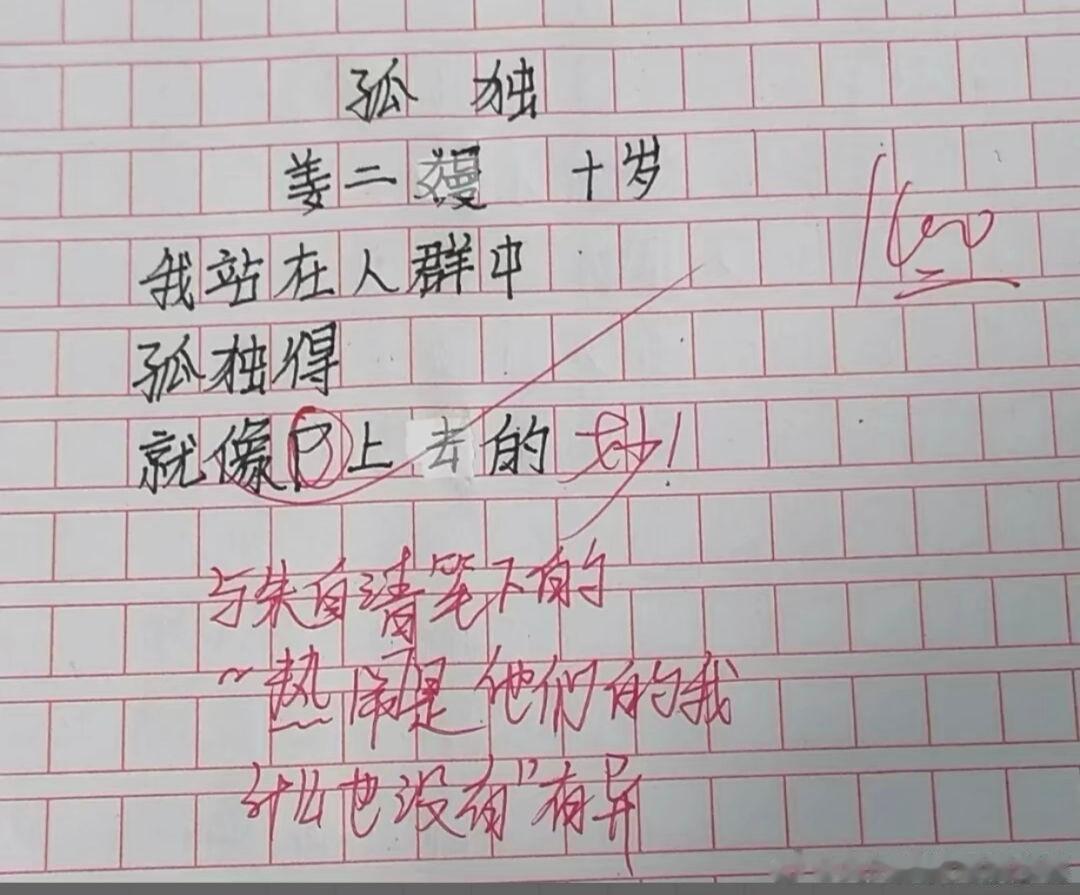 孤独
姜二嫚 十岁
我站在人群中
孤独得
就像P上去的 妙!
100
与朱自清笔下的
"热闹是他们的我
什么也没有"有异